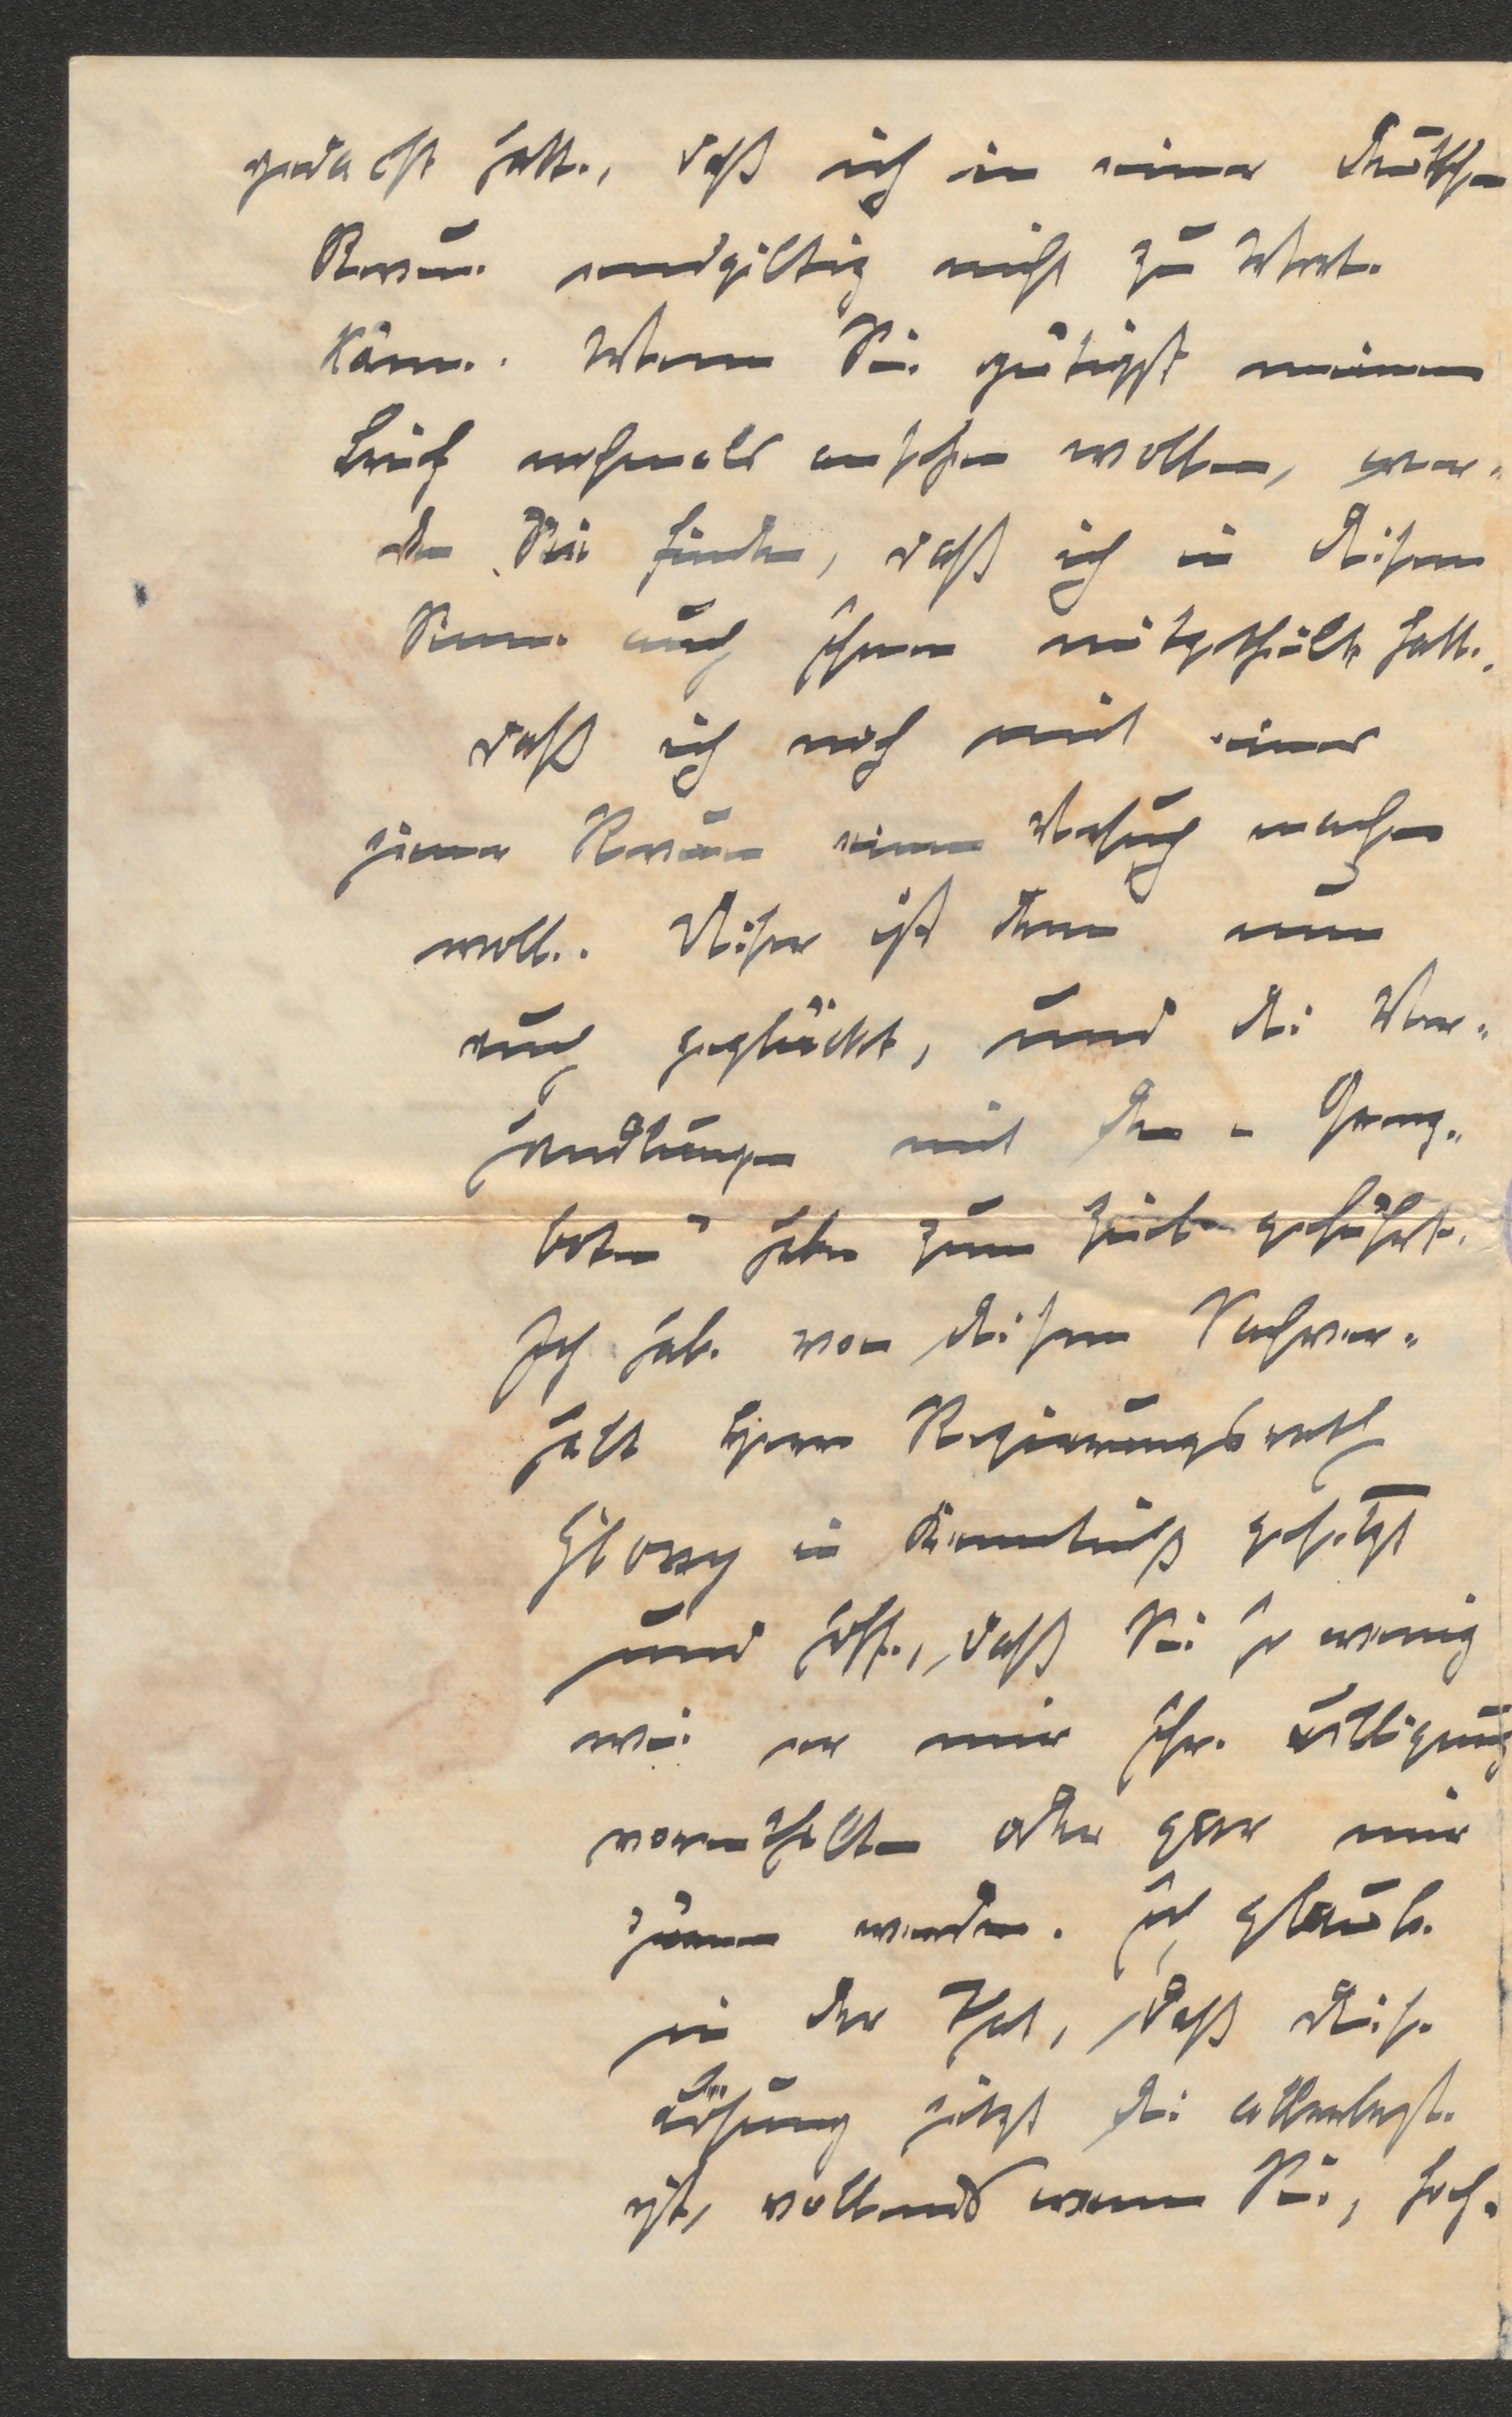 gedacht hatte, daß ich in einer deutschen
Revue endgiltig nicht zu Wort
käme. Wenn Sie gütigst meinen
Brief nochmals ansehen wollen, wer-
den Sie finden, daß ich in diesem
Sinne auch Ihnen mitgetheilt hatte,
daß ich noch mit einer
jener Revuen einen Versuch machen
wolle. Dieser ist denn nun
auch geglückt, und die Ver-
handlungen mit den „Grenz-
boten" haben zum Ziele geführt.
Ich habe von diesem Sachver-
halt Herrn Regierungsrath
Glossy in Kenntniß gesetzt
und hoffe, daß Sie so wenig
wie er mir Ihre Billigung
vorenthalten oder gar mir
zürnen werden. Ich glaube
in der That, daß diese
Lösung jetzt die allerbeste
ist, vollends wenn Sie, hoch-